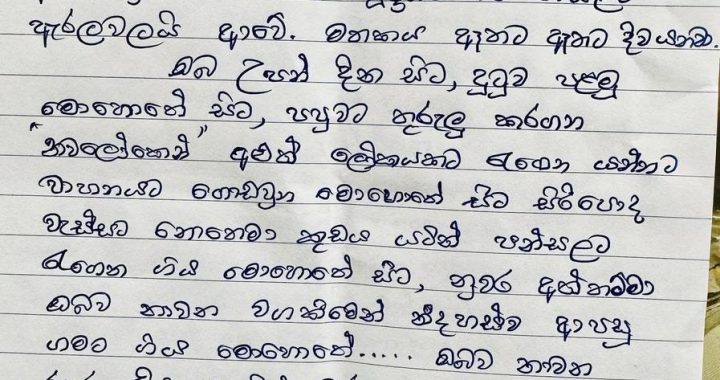 ඇරලවලයි ආවේ. මතකය ඈතට ඈතට දිවයනවා.
ඔබ උපන් දින සිට, දුටුව පළමු
මොහොතේ සිට, පපුවට තුරුලු කරගෙන
"නවලෝකෙන්" අළුත් ලෝකයකට රැගෙන යන්නට
වාහනයට ගොඩවුන මොහොතේ සිට සිරිපොද
වැස්සට නොතෙමා කුඩය යටින් පන්සලට
රැගෙන ගිය මොහොතේ සිට, නුවර අත්තම්මා
ඔබව නාවන වගකීමෙන් නිදහස්ව ආපසු
ගමට ගිය මොහොතේ..... ඔබව නාවන